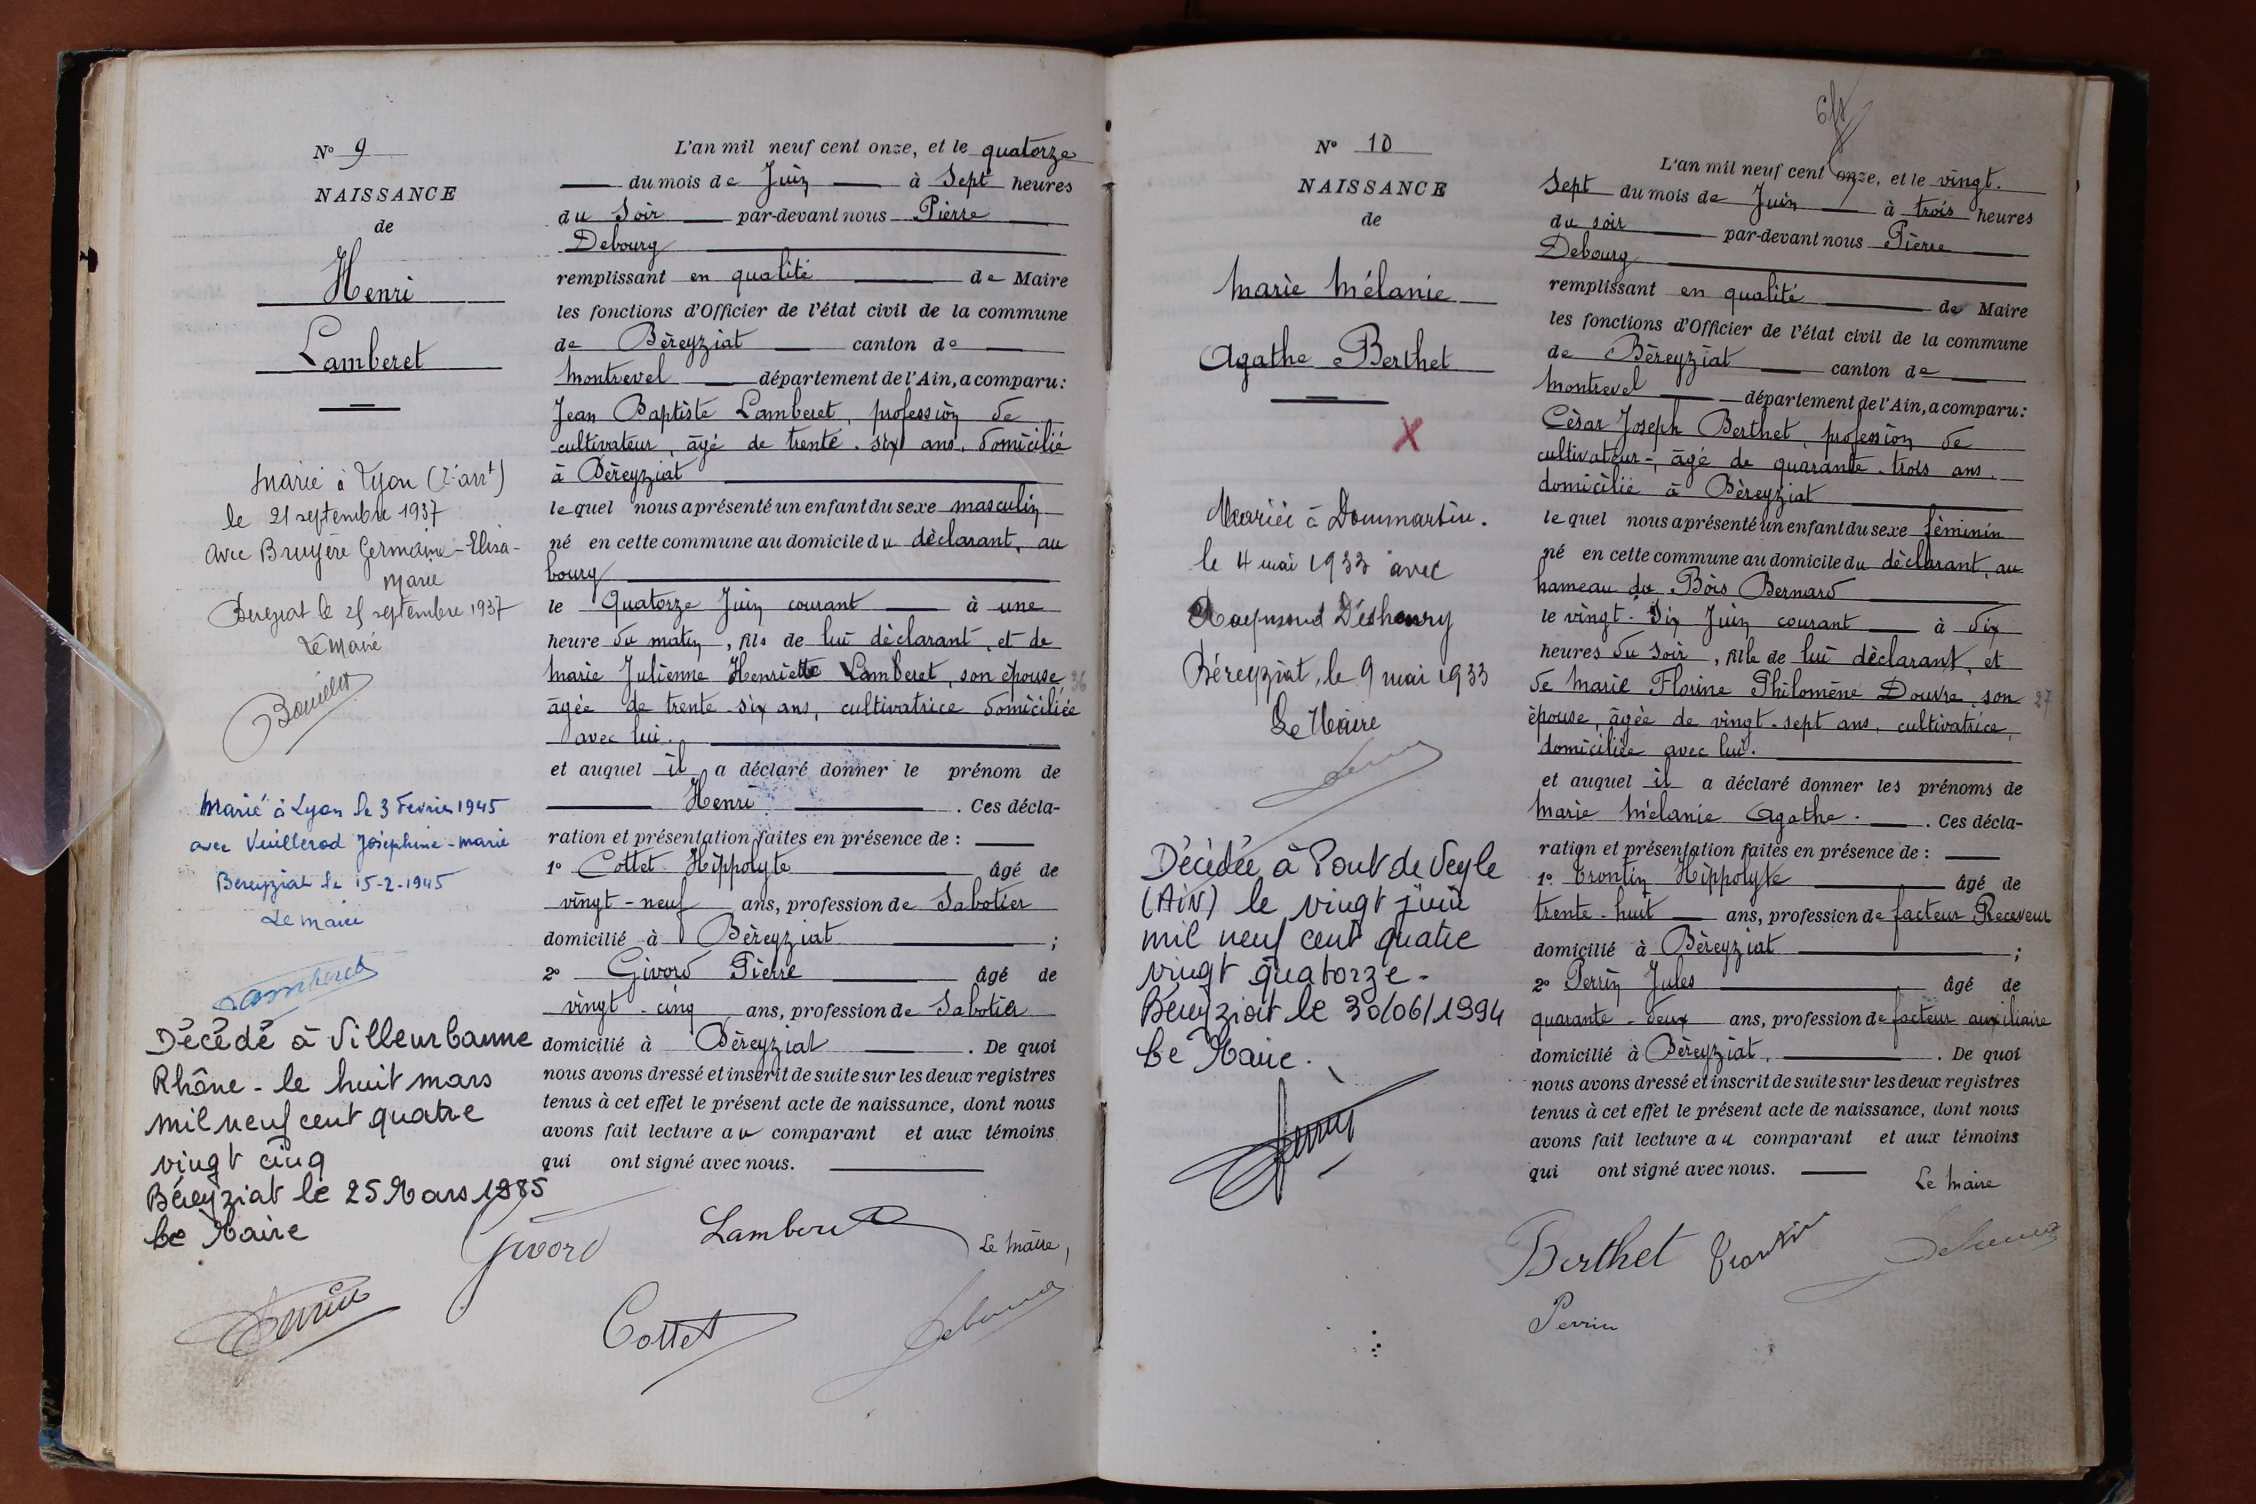 N° 9
NAISSANCE
de
Henri
Lamberet
Marié à Lyon
le 21 septembre 1937
avec Bruyère Germaine-Elisa-
Marie
le 25 septembre 1937
Le Maire
Bouillet
Marié à Lyon le 3 Fevrier 1945
avec Vuillerod Joséphine-Marie
Bereyziat le 15-2-1945
Le Maire
Lamberet
Décédé à Villeurbanne
Rhône - le huit mars
mil neuf cent quatre
vingt cinq
Béreyziat le 25 Mars 1985
Le Maire
L'an mil neuf cent onze, et le quatorze
du mois de Juin à Sept heures
du Soir par-devant nous Pierre
Debourg
remplissant en qualité de Maire
les fonctions d'Officier de l'état civil de la commune
de Béreyziat canton de
Montrevel département de l'Ain, a comparu:
Jean Baptiste Lamberet, profession de
cultivateur, âgé de trente-six ans, domicilié
à Béreyziat
le quel nous a présenté un enfant du sexe masculin
né en cette commune au domicile du déclarant, au
bourg
le Quatorze Juin courant à une
heure du matin, fils de lui déclarant, et de
Marie Julienne Henriette Lamberet, son épouse 36
âgée de trente-six ans, cultivatrice domiciliée
avec lui.
et auquel il a déclaré donner le prénom de
Henri. Ces décla-
ration et présentation faites en présence de :
1° Cottet Hippolyte âgé de
vingt-neuf ans, profession de Sabotier
domicilié à Béreyziat ;
2° Givord Pierre âgé de
vingt-cinq ans, profession de Sabotier
domicilié à Béreyziat. De quoi
nous avons dressé et inscrit de suite sur les deux registres
tenus à cet effet le présent acte de naissance, dont nous
avons fait lecture au comparant et aux témoins
qui ont signé avec nous.
Givord
Lamberet
Le Maire,
Cottet
Debourg
N° 10
NAISSANCE
de
Marie Mélanie
Agathe Berthet
X
Mariée à Dommartin.
le 4 mai 1933 avec
Raymond Deshenry
Béreyziat, le 9 mai 1933
Le Maire
Décédée à Pont de Veyle
(AIN) le vingt juin
mil neuf cent quatre
vingt quatorze.
Béreyziat le 30/06/1994
Le Maire.
L'an mil neuf cent onze, et le vingt-
Sept du mois de Juin à trois heures
du soir par-devant nous Pierre
Debourg
remplissant en qualité de Maire
les fonctions d'Officier de l'état civil de la commune
de Béreyziat canton de
Montrevel département de l'Ain, a comparu:
César Joseph Berthet, profession de
cultivateur, âgé de quarante-trois ans,
domicilié à Béreyziat
le quel nous a présenté un enfant du sexe féminin
né en cette commune au domicile du déclarant, au
hameau du Bois Bernard
le vingt-six Juin courant à dix
heures du soir, fille de lui déclarant, et
de Marie Florine Philomène Douvre, son 27
épouse, âgée de vingt-sept ans, cultivatrice,
domiciliée avec lui.
et auquel il a déclaré donner les prénoms de
Marie Mélanie Agathe. Ces décla-
ration et présentation faites en présence de :
1° Trontin Hippolyte âgé de
trente-huit ans, profession de facteur Receveur
domicilié à Béreyziat ;
2° Perrin Jules âgé de
quarante-deux ans, profession de facteur auxiliaire
domicilié à Béreyziat. De quoi
nous avons dressé et inscrit de suite sur les deux registres
tenus à cet effet le présent acte de naissance, dont nous
avons fait lecture au comparant et aux témoins
qui ont signé avec nous.
Le Maire
Berthet Trontin Debourg
Perrin